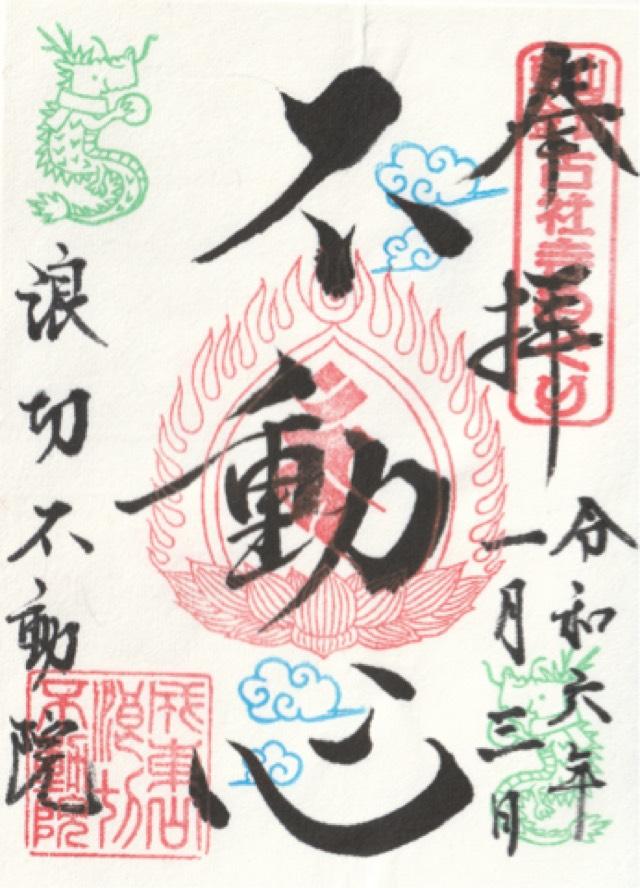 奉拝
古社寺めぐり
令和六年
一月三日
不動心
浪切不動院
成東山
浪切
不動院